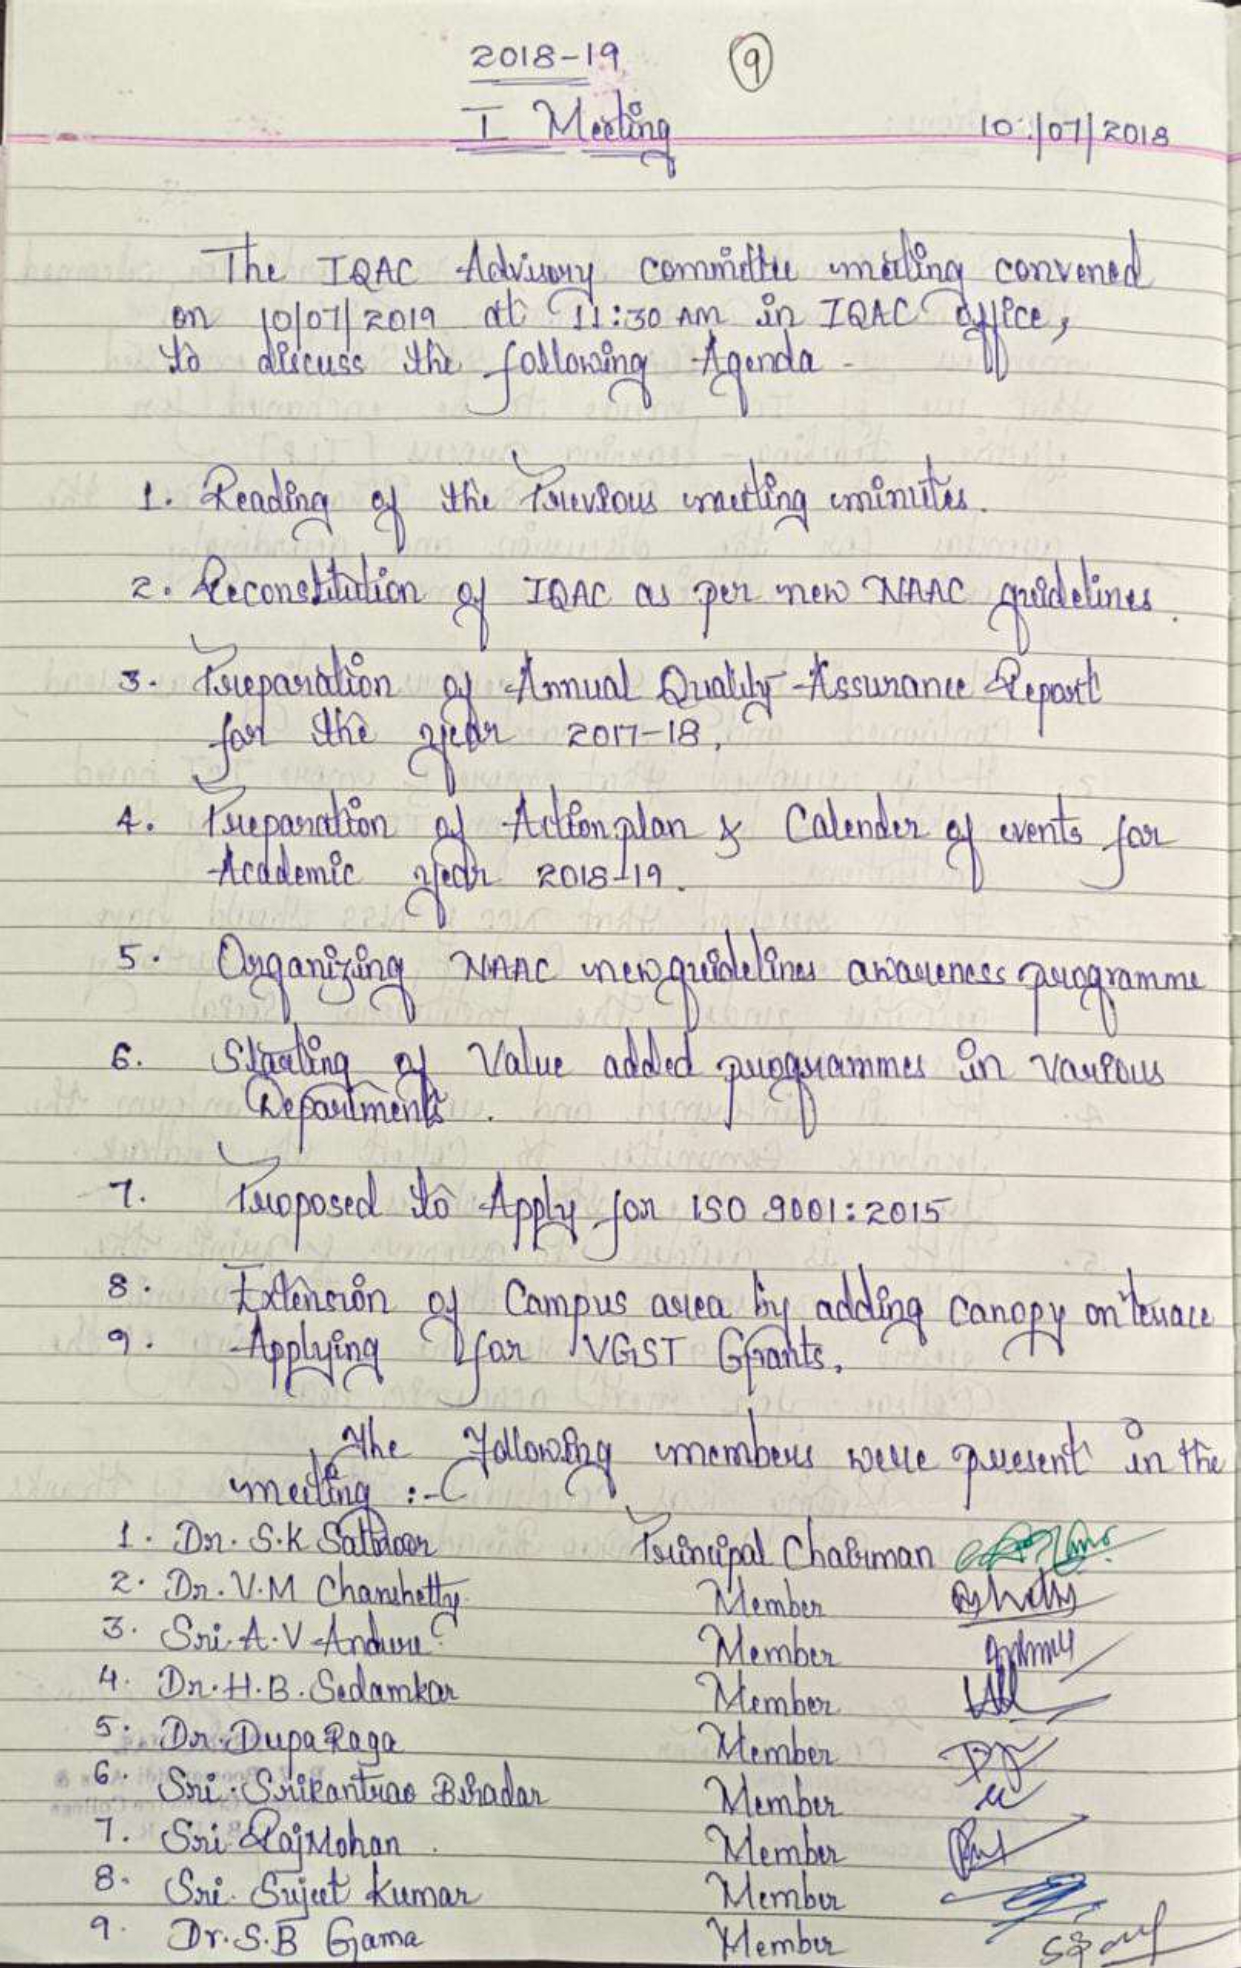 2018-19
9
I Meeting
10/07/2018
The IQAC Advisory committee meeting convened
on 10/07/2019 at 11:30 AM in IQAC office,
to discuss the following Agenda -
1. Reading of the Previous meeting minutes.
2. Reconstitution of IQAC as per new NAAC guidelines.
3. Preparation of Annual Quality Assurance Report
for the year 2017-18.
4. Preparation of Action plan & Calender of events for
Academic year 2018-19.
5. Organizing NAAC new guidelines awareness programme
6. Starting of Value added programmes in various
Departments.
7. Proposed to Apply for ISO 9001:2015
8. Extension of Campus area by adding canopy on terrace
9. Applying for VGST Grants.
The following members were present in the
meeting :-
1. Dr. S.K Satnoor Principal Chairman
2. Dr. V.M Chanshetty Member
3. Sri. A.V Andure Member
4. Dr. H.B. Sedamkar Member
5. Dr. Dupa Raga Member
6. Sri. Srikantrao Biradar Member
7. Sri RajMohan Member
8. Sri. Sujeet Kumar Member
9. Dr. S.B Gama Member